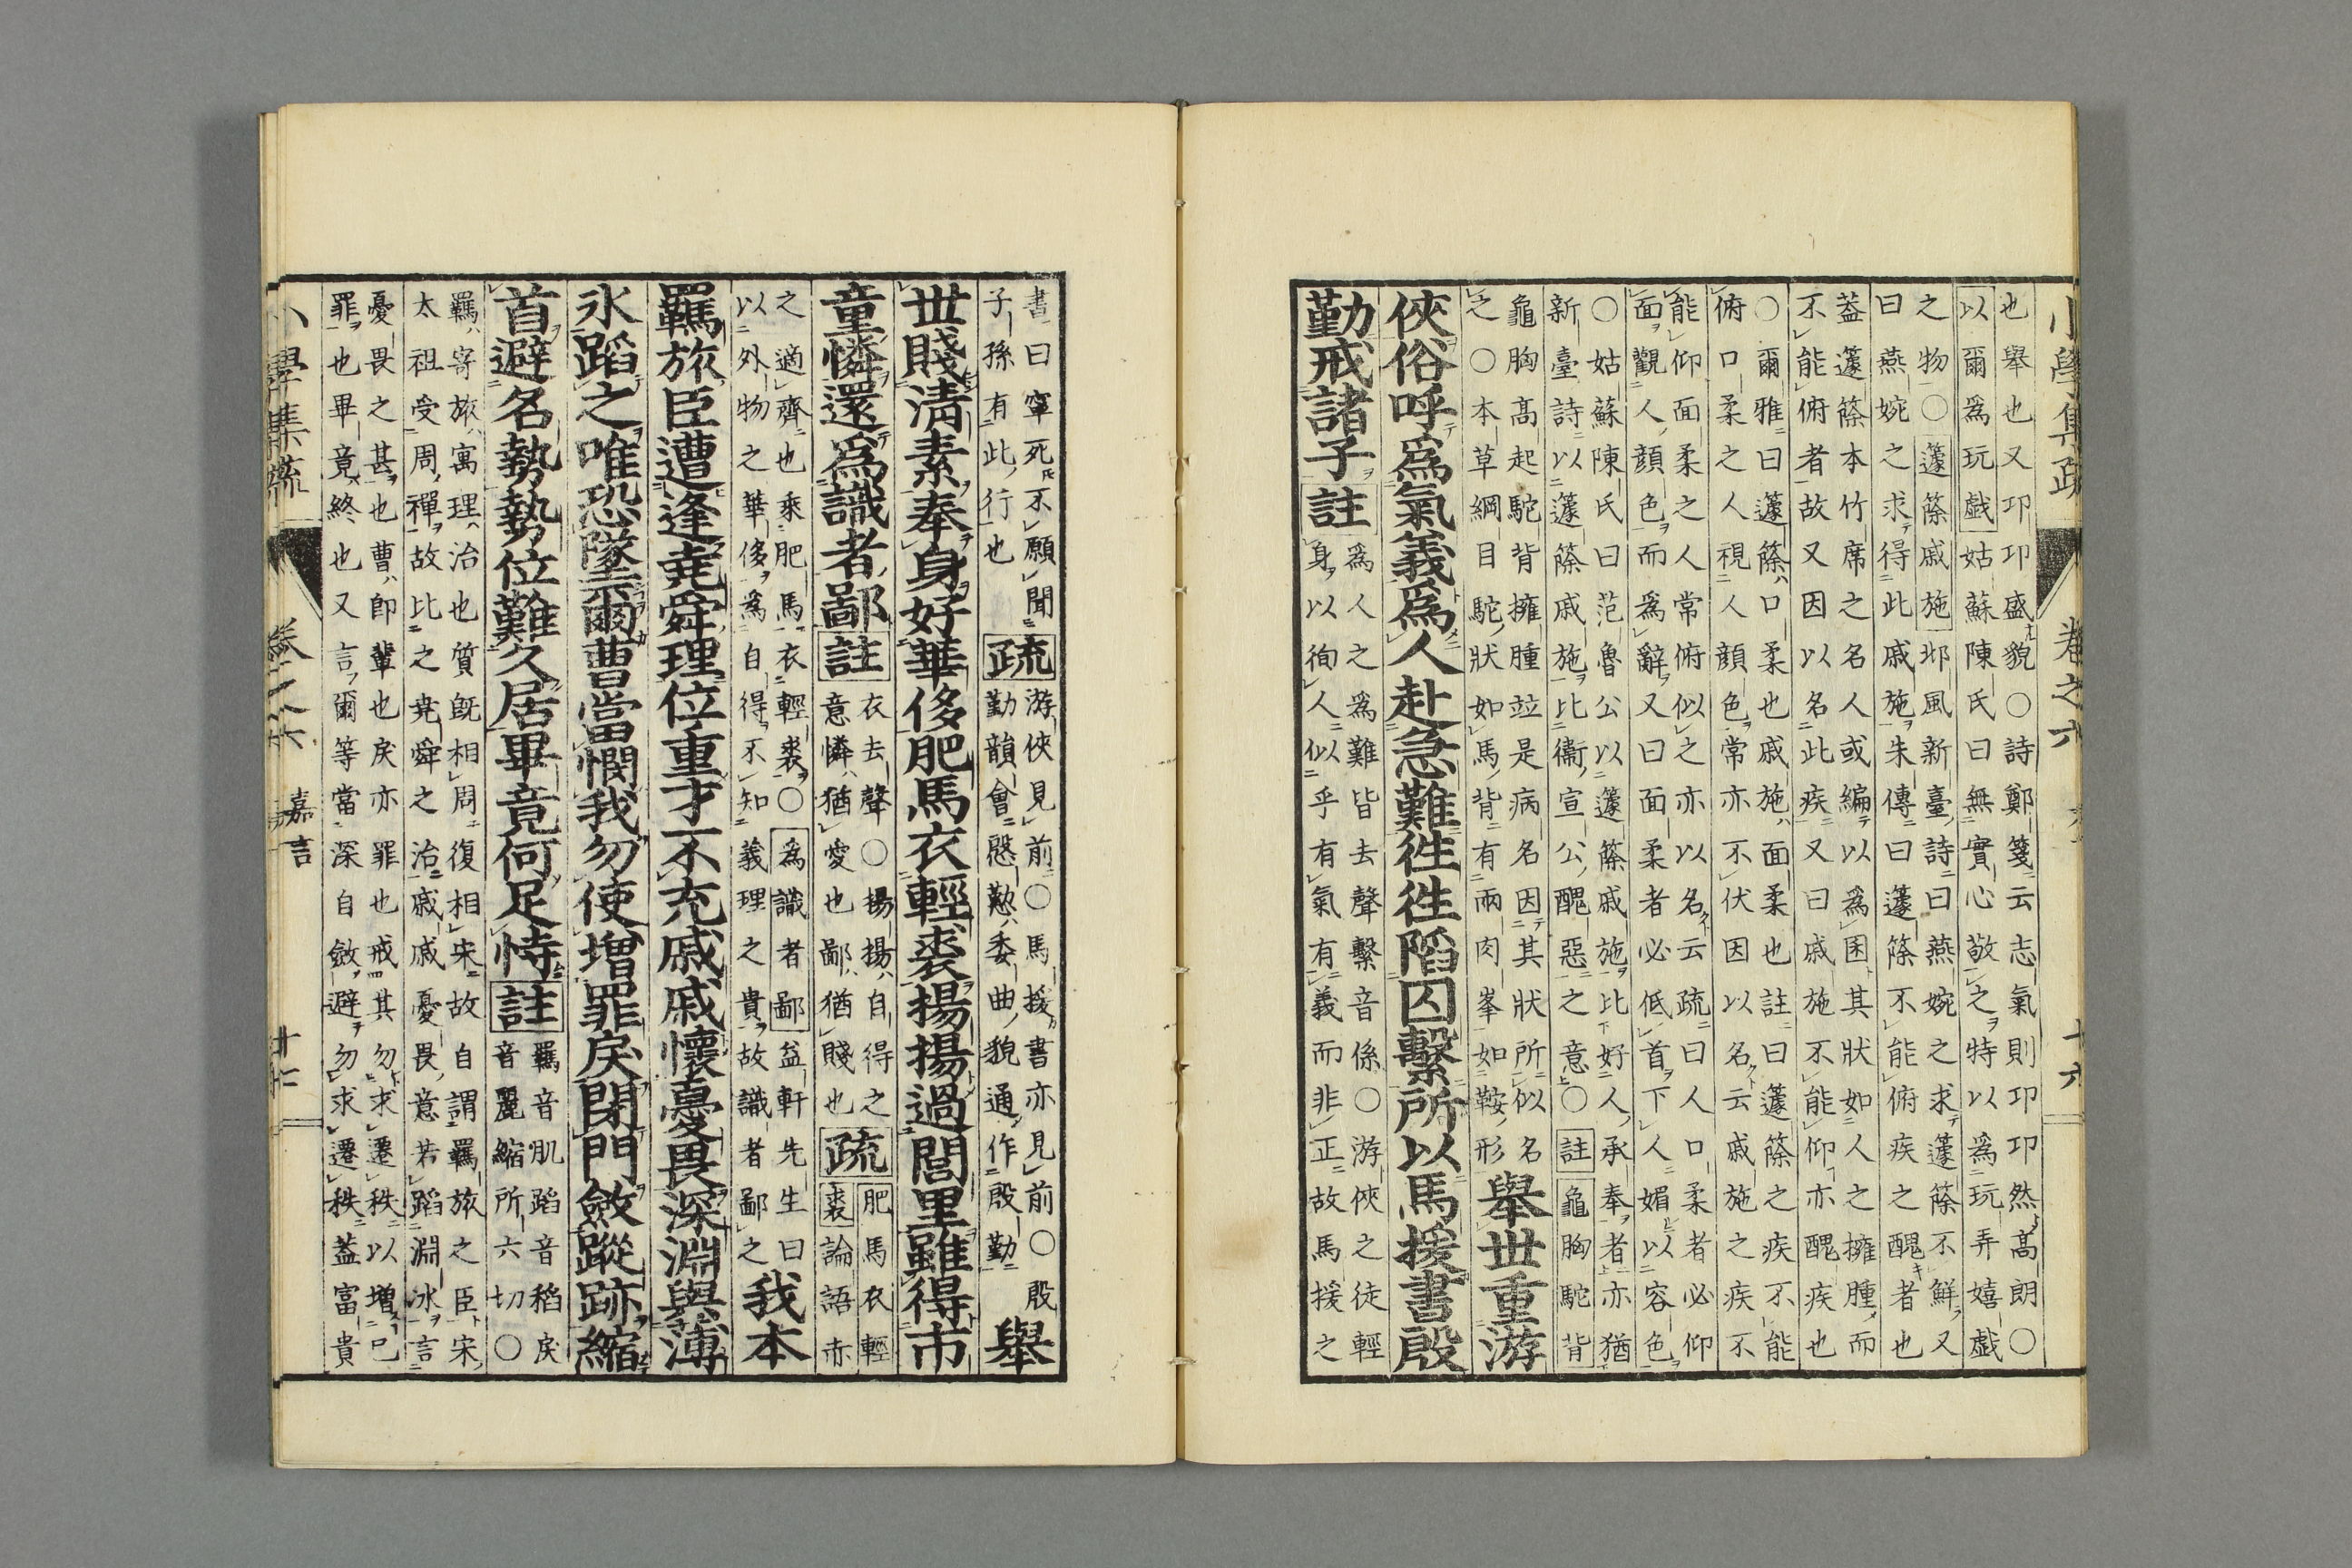 小學集疏　卷之六　十六
也舉也又卭卭盛貌○詩鄭箋云志氣則卭卭然高朗○
以爾爲玩戯姑蘇陳氏曰無實心敬之特以爲玩弄嬉戯
之物○籧篨戚施邶風新臺詩曰燕婉之求籧篨不鮮又
曰燕婉之求得此戚施朱傳曰籧篨不能俯疾之醜者也
葢籧篨本竹席之名人或編以爲囷其狀如人之擁腫而
不能俯者故又因以名此疾又曰戚施不能仰亦醜疾也
○爾雅曰籧篨口柔也戚施面柔也註曰籧篨之疾不能
俯口柔之人視人顔色常亦不伏因以名云戚施之疾不
能仰面柔之人常俯似之亦以名云疏曰人口柔者必仰
面觀人顔色而爲辭又曰面柔者必低首下人媚以容色
○姑蘇陳氏曰范魯公以籧篨戚施比好人承奉者亦猶
新臺詩以籧篨戚施比衞宣公醜惡之意○註龜胸駝背
龜胸高起駝背擁腫竝是病名因其狀所似名
之○本草綱目駝狀如馬背有兩肉峯如鞍形
舉世重游
俠俗呼爲氣義爲人赴急難徃徃陷囚繫所以馬援書殷
勤戒諸子註
爲人之爲難皆去聲繫音係○游俠之徒輕
身以徇人似乎有氣有義而非正故馬援之
書曰寧死不願聞
子孫有此行也
疏
游俠見前○馬援書亦見前○殷
勤韻會慇懃委曲貌通作殷勤
舉
世賤淸素奉身好華侈肥馬衣輕裘揚揚過閭里雖得市
童憐還爲識者鄙註
衣去聲○揚揚自得之
意憐猶愛也鄙猶賤也
疏
肥馬衣輕
裘論語赤
之適齊也乘肥馬衣輕裘○爲識者鄙益軒先生曰
以外物之華侈爲自得不知義理之貴故識者鄙之
我本
羈旅臣遭逢堯舜理位重才不充戚戚懷憂畏深淵與薄
氷蹈之唯恐墜爾曹當憫我勿使增罪戾閉門斂蹤跡縮
首避名勢勢位難久居畢竟何足恃註
羈音肌蹈音稻戾
音麗縮所六切○
羈寄旅寓理治也質旣相周復相宋故自謂羈旅之臣宋
太祖受周禪故比之堯舜之治戚戚憂畏意若蹈淵冰言
憂畏之甚也曹卽輩也戾亦罪也戒其勿求遷秩以增己
罪也畢竟終也又言爾等當深自斂避勿求遷秩葢富貴
小學集疏　卷之六　嘉言